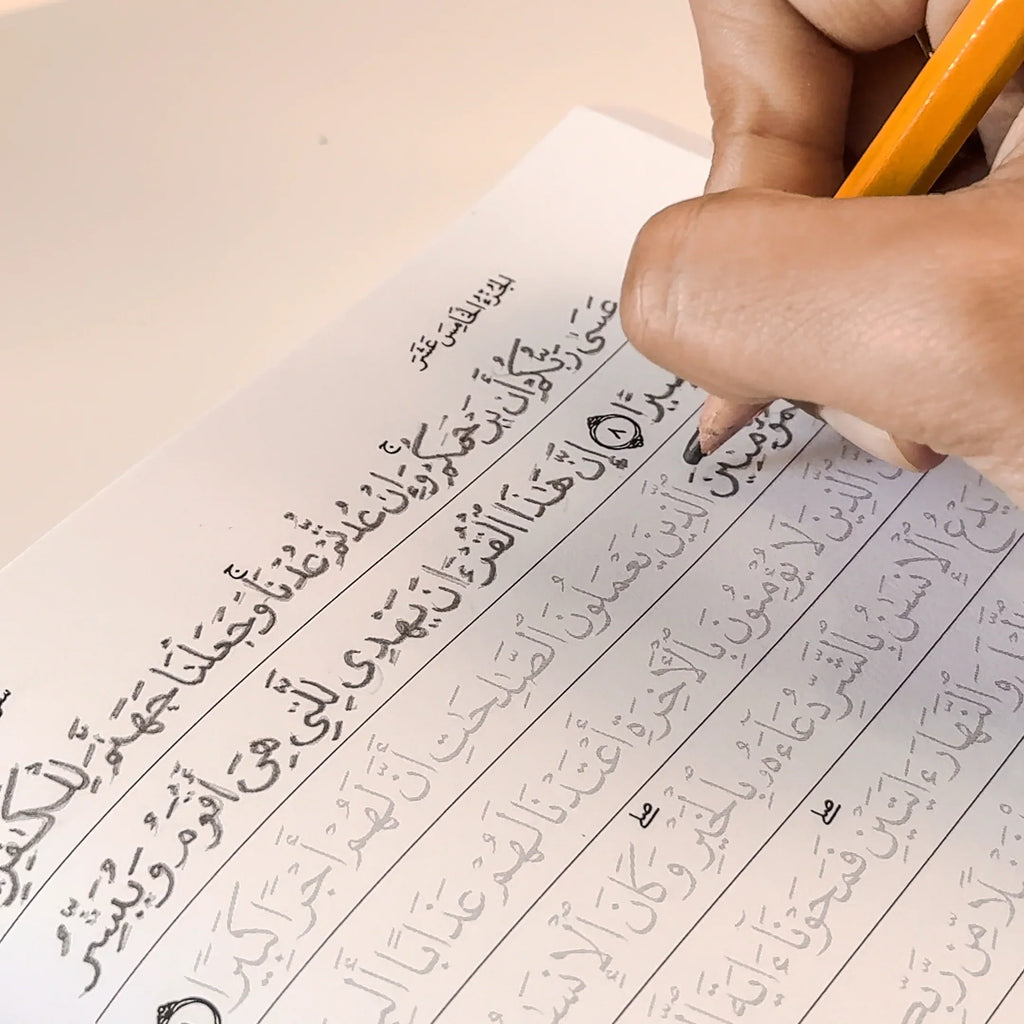 الجُزْءُ الخَامِسَ عَشَرَ
عَسَىٰ رَبُّكُمْ أَن يَرْحَمَكُمْ ۚ وَإِنْ عُدتُّمْ عُدْنَا ۚ وَجَعَلْنَا جَهَنَّمَ لِلْكَٰفِرِ
صِيرًا ٨ إِنَّ هَٰذَا ٱلْقُرْءَانَ يَهْدِي لِلَّتِي هِيَ أَقْوَمُ وَيُبَشِّرُ
مُؤْمِنِينَ ٱلَّذِينَ يَعْمَلُونَ ٱلصَّٰلِحَٰتِ أَنَّ لَهُمْ أَجْرًا كَبِيرًا
نَّ ٱلَّذِينَ لَا يُؤْمِنُونَ بِٱلْأَخِرَةِ أَعْتَدْنَا لَهُمْ عَذَابًا أَلِي
يَدْعُ ٱلْإِنسَٰنُ بِٱلشَّرِّ دُعَآءَهُۥ بِٱلْخَيْرِ ۖ وَكَانَ ٱلْإِنسَٰ
وَٱلنَّهَارَ ءَايَتَيْنِ ۖ فَمَحَوْنَآ ءَايَةَ ٱلَّ
ضْلًا مِّن رَّبِّكُ